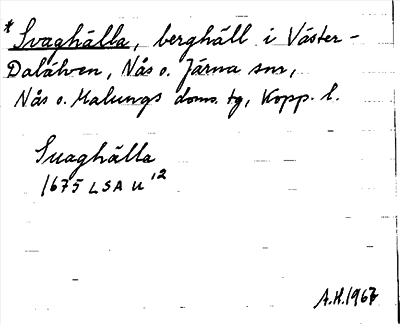 *Svaghälla, berghäll i Väster-
Dalälven, Nås o. Järna snr,
Nås o. Malungs doms. tg, Kopp. l.
Suaghälla
1675 LSA U¹²
A.H. 1967